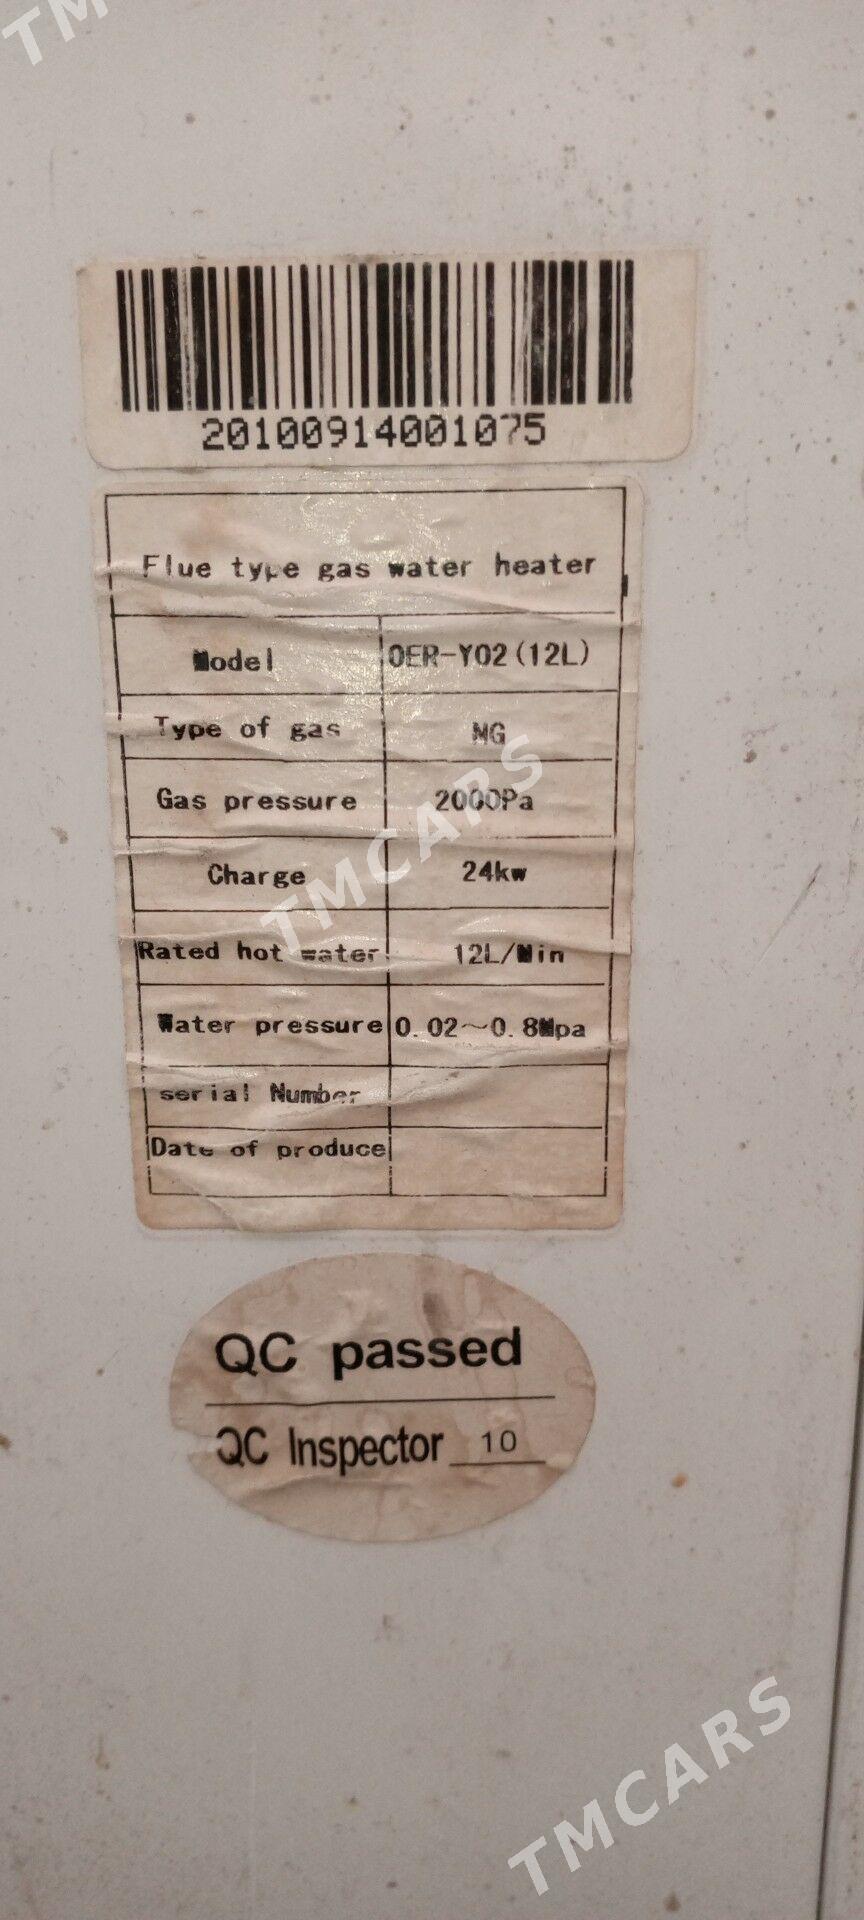 TM
20100914001075
Flue type gas water heater
Model OER-Y02(12L)
Type of gas NG
Gas pressure 2000Pa
Charge 24kw
Rated hot water 12L/Min
Water pressure 0.02~0.8Mpa
serial Number
Date of produce
TMCARS
QC passed
QC Inspector 10
TMCARS